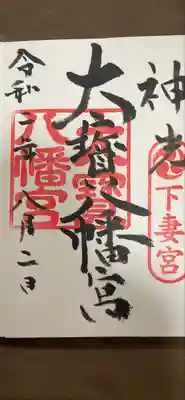 神光
下妻宮
大寶八幡宮
八幡宮
令和二年八月二日